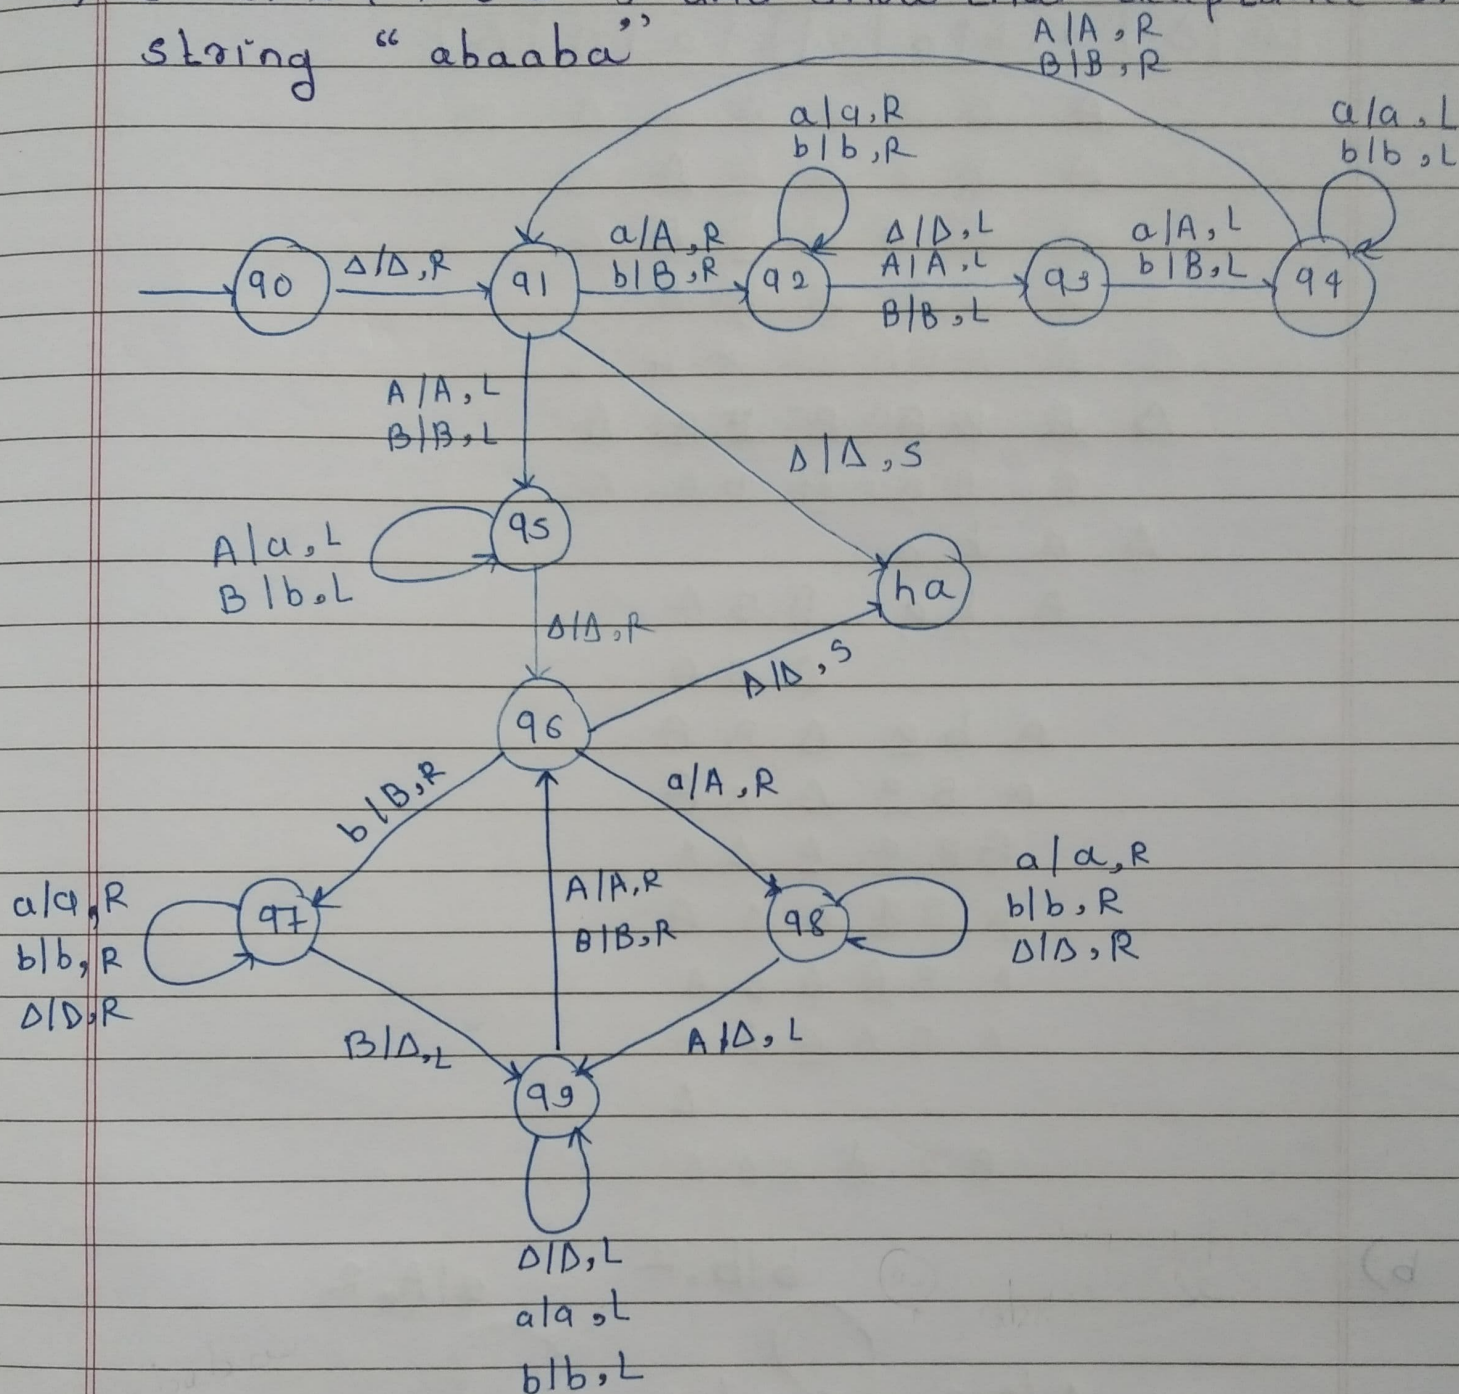 string " abaaba"
A/A, R
B/B, R
a/a, R
b/b, R
a/a, L
b/b, L
q0
Δ/Δ, R
q1
a/A, R
b/B, R
q2
Δ/Δ, L
A/A, L
B/B, L
q3
a/A, L
b/B, L
q4
A/A, L
B/B, L
Δ/Δ, S
q5
A/a, L
B/b, L
ha
Δ/Δ, R
Δ/Δ, S
q6
b/B, R
a/A, R
a/a, R
b/b, R
Δ/Δ, R
q7
A/A, R
B/B, R
q8
a/a, R
b/b, R
Δ/Δ, R
B/Δ, L
A/Δ, L
q9
Δ/Δ, L
a/a, L
b/b, L